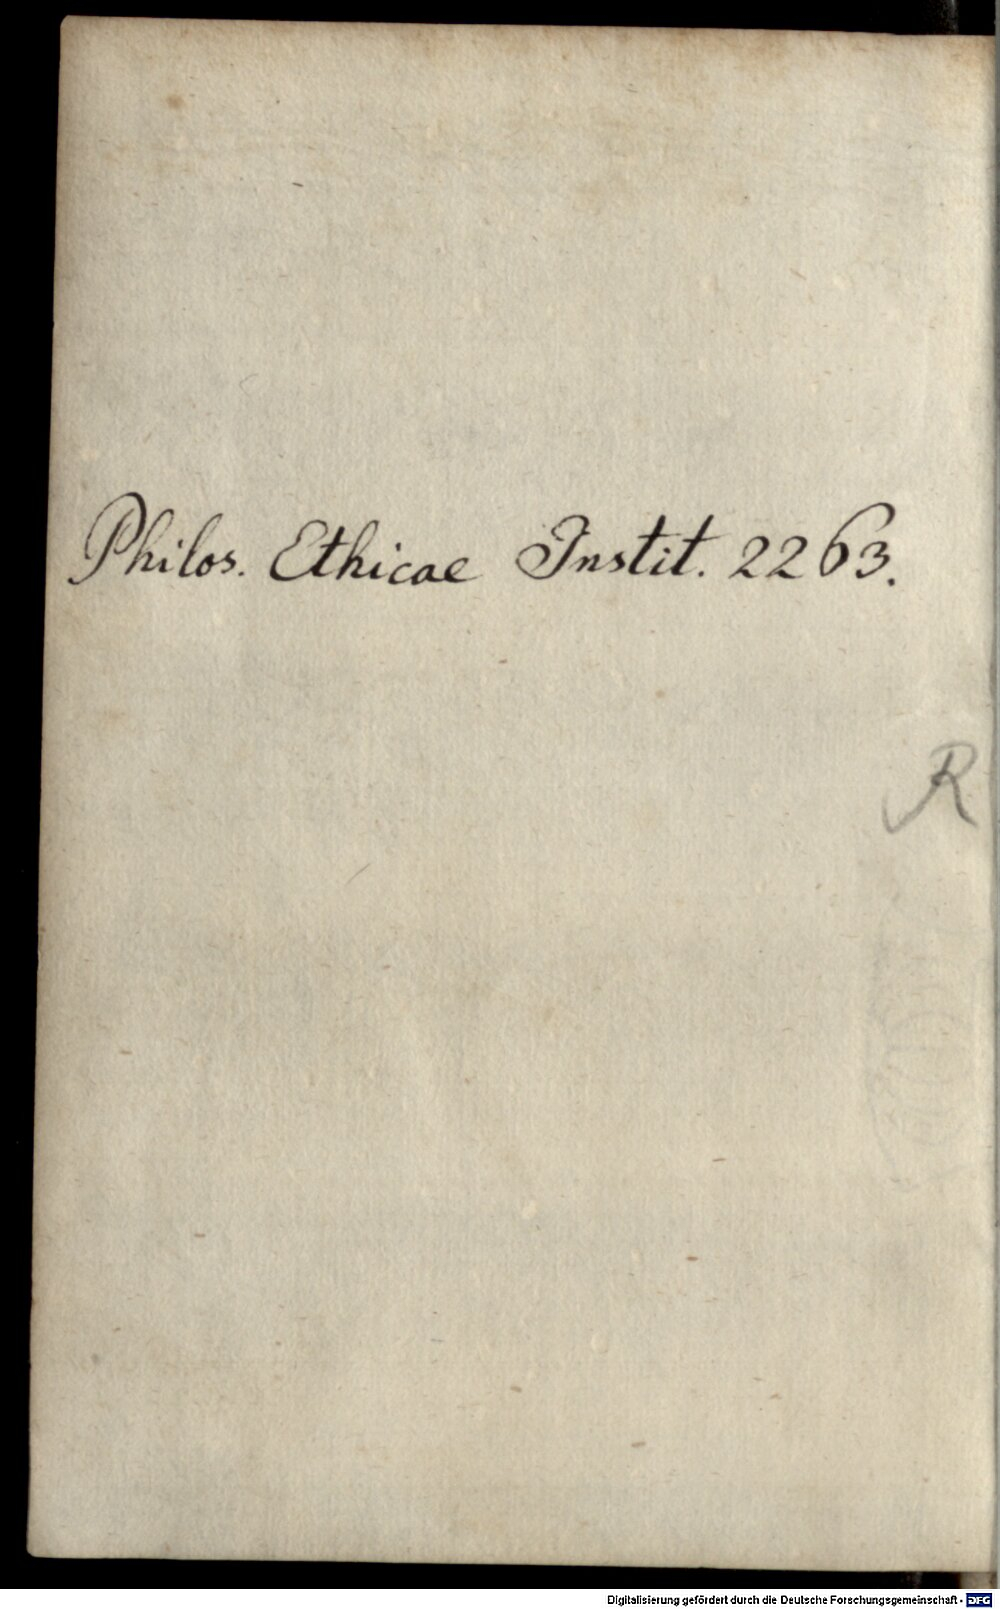 Philos. Ethicae Instit. 2263.
R
Digitalisierung gefördert durch die Deutsche Forschungsgemeinschaft - DFG